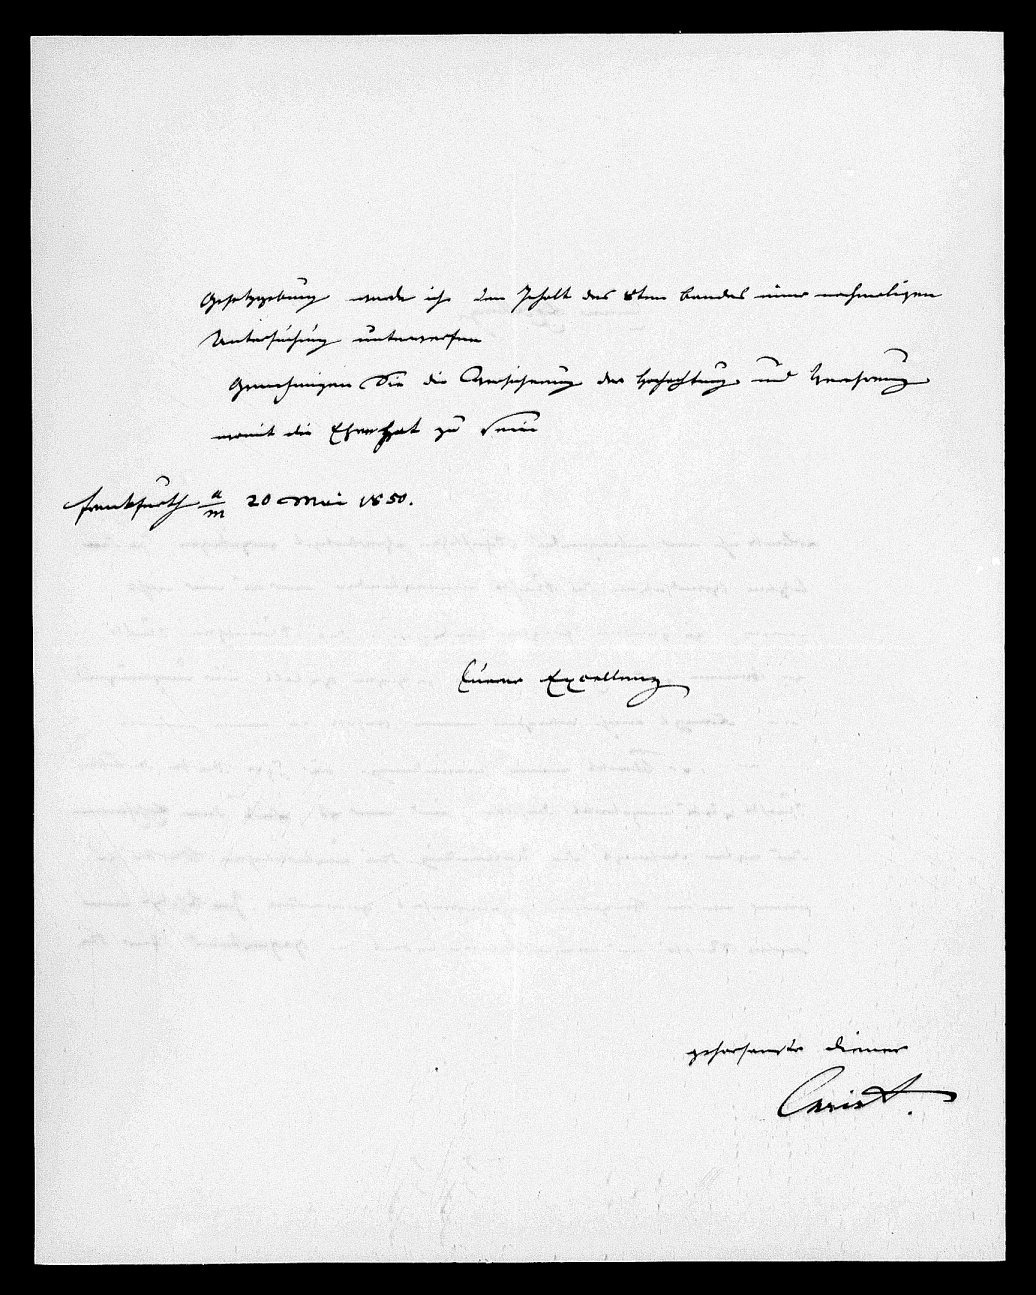 Gesetzgebung werde ich den Inhalt des 8ten Bandes einer nochmaligen
Untersuchung unterwerfen
Genehmigen Sie die Versicherung der Hochachtung und Verehrung
womit die Ehre hat zu sein
Frankfurth a/m 20 Mai 1850.
Euerer Excellenz
gehorsamster Diener
Christ.